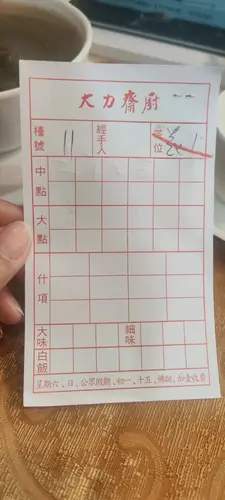 大力齋廚
檯號 11 經手人 茶位
中點
大點
什項
大味 細味
白飯
星期六、日、公眾假期、初一、十五、佛誕、加壹收費